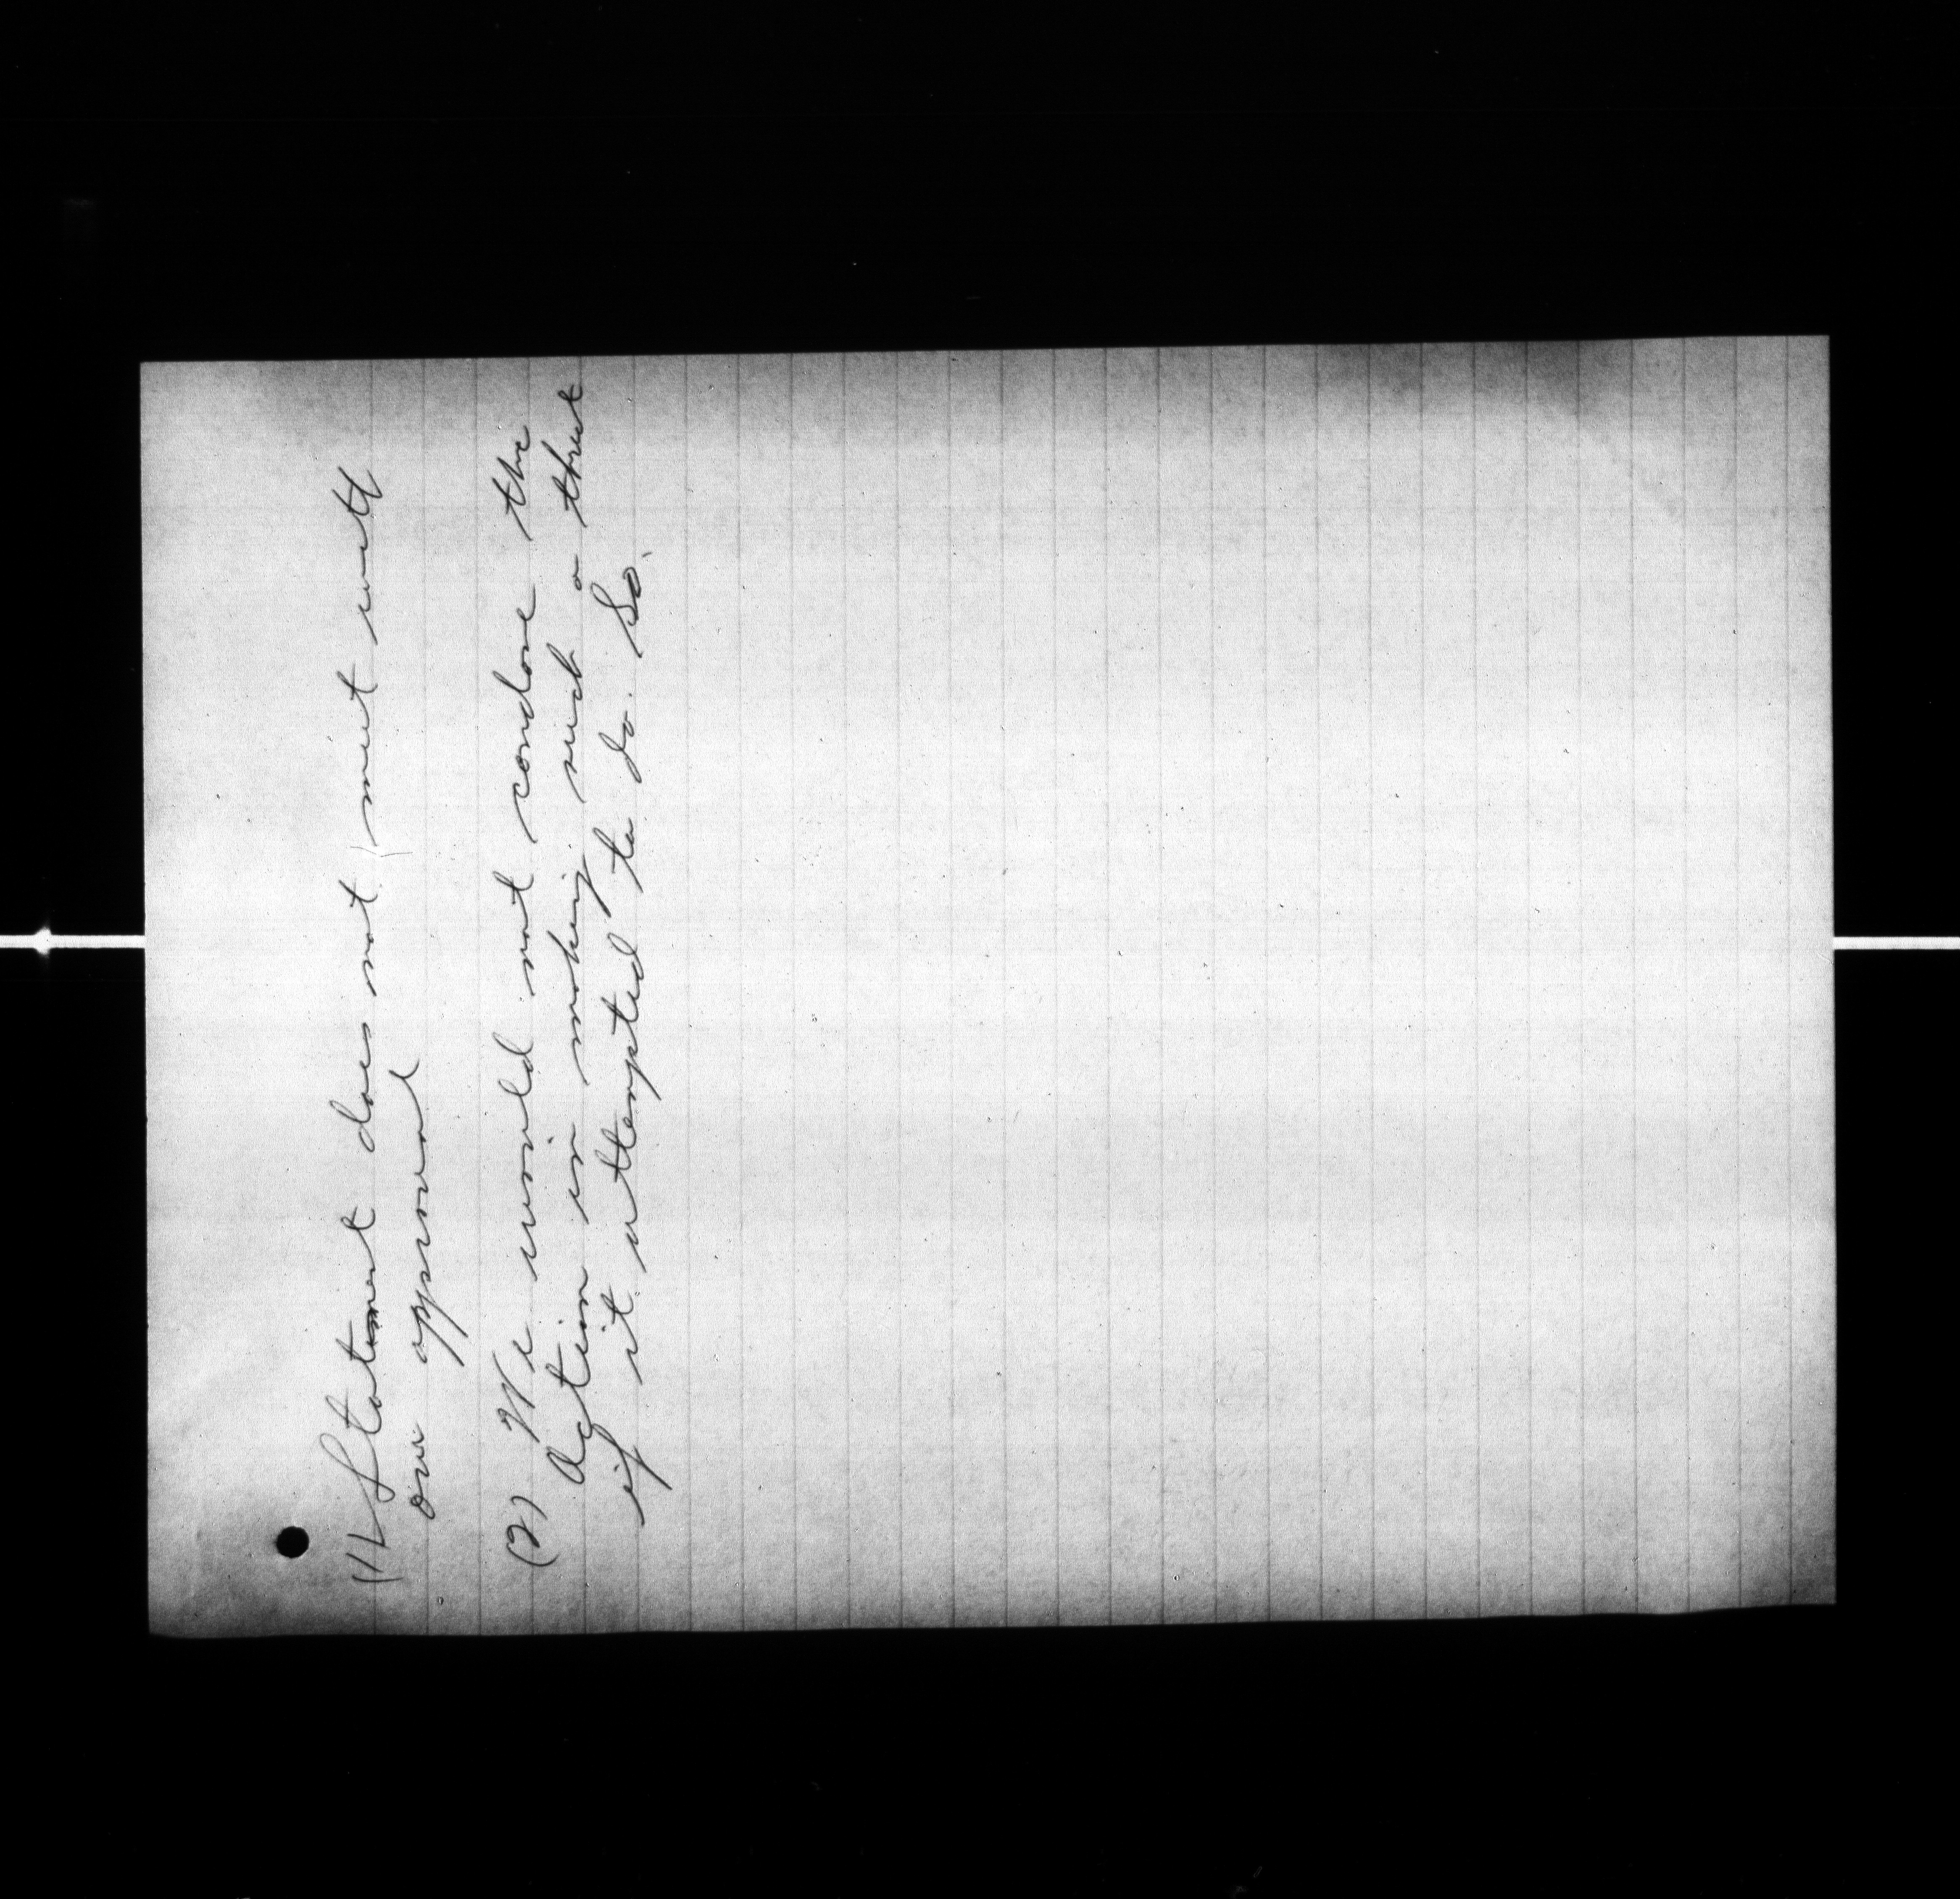 (1) Statement does not meet with
our approval
(2) We would not condone the
Action in making such a threat
if it attempted to do so.